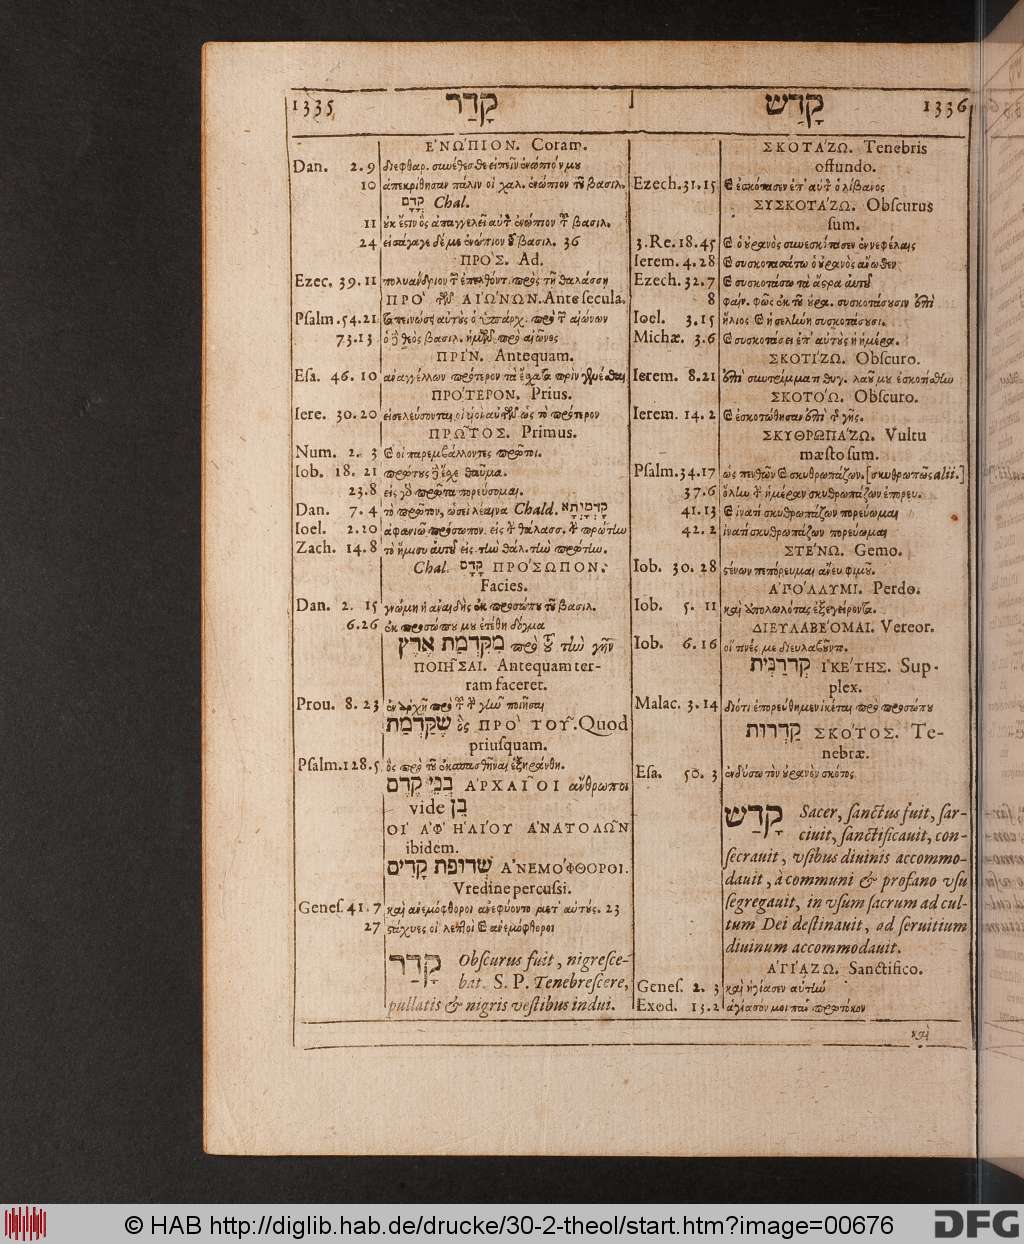 1335 קָדַר
ΕΝΩ'ΠΙΟΝ. Coram.
Dan. 2.9 διεφθαρ. συνέθεσθε εἰπεῖν ἐνώπιόν μου
10 ἀπεκρίθησαν πάλιν οἱ χαλ. ἐνώπιον τοῦ βασιλ.
קֳדָם Chal.
11 οὐκ ἔστιν ὃς ἀπαγγελεῖ αὐτὰ ἐνώπιον τοῦ βασιλ.
24 εἰσάγαγε δέ με ἐνώπιον τοῦ βασιλ. 36
ΠΡΟ'Σ. Ad.
Ezec. 39.11 πολυάνδριον τῶν ἐπελθόντ. πρὸς τῇ θαλάσσῃ
ΠΡΟ' τῶν ΑΙΩ'ΝΩΝ. Ante secula.
Psalm. 54.21 ταπεινώσει αὐτοὺς ὁ ὑπάρχ. πρὸ τῶν αἰώνων
73.13 ὁ δὲ θεὸς βασιλ. ἡμῶν πρὸ αἰῶνος
ΠΡΙ'Ν. Antequam.
Esa. 46.10 ἀναγγέλλων πρότερον τὰ ἔσχατα πρὶν γενέσθαι
ΠΡΟ'ΤΕΡΟΝ. Prius.
Iere. 30.20 εἰσελεύσονται οἱ υἱοὶ αὐτῶν ὡς τὸ πρότερον
ΠΡΩ~ΤΟΣ. Primus.
Num. 2. 3 καὶ οἱ παρεμβάλλοντες πρῶτοι.
Iob. 18. 21 πρώτους δὲ ἔσχε θαῦμα.
23.8 εἰς γὸ πρῶτα πορεύσομαι.
Dan. 7. 4 τὸ πρῶτον, ὡσεὶ λέαινα Chald. קַדְמָיְתָא
Ioel. 2.20 ἀφανιῶ πρόσωπον. εἰς τὴν θάλασσ. τὴν πρώτην
Zach. 14.8 τὸ ἥμισυ αὐτοῦ εἰς τὴν θάλ. τὴν πρώτην.
Chal. קֳדָם ΠΡΟ'ΣΩΠΟΝ.
Facies.
Dan. 2. 15 γνώμη ἡ ἀναιδὴς ἐκ προσώπου τοῦ βασιλ.
6.26 ἐκ προσώπου μου ἐτέθη δόγμα
מִקַּדְמַת אֶרֶץ πρὸ τοῦ τὴν γῆν
ΠΟΙΗ~ΣΑΙ. Antequam ter-
ram faceret.
Prou. 8. 23 ἐν ἀρχῇ πρὸ τοῦ τὴν γῆν ποιῆσαι
שֶׁקַּדְמַת ὃς ΠΡΟ' ΤΟΥ~. Quod
priusquam.
Psalm. 128.5 ὃς πρὸ τοῦ ἐκσπασθῆναι ἐξηράνθη.
בְּנֵי קֶדֶם ΑΡΧΑΙ~ΟΙ ἄνθρωποι
vide בֵּן
ΟΙ' ΑΦ' ΗΛΙ'ΟΥ ΑΝΑΤΟΛΩ~Ν
ibidem.
שְׁדוּפֹת קָדִים ΑΝΕΜΟ'ΦΘΟΡΟΙ.
Vredine percussi.
Genes. 41. 7 καὶ ἀνεμόφθοροι ἀνεφύοντο μετ' αὐτούς. 23
27 στάχυες οἱ λεπτοὶ καὶ ἀνεμόφθοροι
קָדַר Obscurus fuit, nigresce-
bat. S. P. Tenebrescere,
pullatis & nigris vestibus indui.
קָדַשׁ 1336
ΣΚΟΤΑ'ΖΩ. Tenebris
offundo.
Ezech. 31.15 καὶ ἐσκότασεν ἐπ' αὐτὸν ὁ λίβανος
ΣΥΣΚΟΤΑ'ΖΩ. Obscurus
sum.
3.Re. 18.45 καὶ ὁ οὐρανὸς συνεσκότασεν ἐν νεφέλαις
Ierem. 4.28 καὶ συσκοτασάτω ὁ οὐρανὸς ἄνωθεν
Ezech. 32.7 καὶ συσκοτάσω τὰ ἄστρα αὐτοῦ
8 φαίν. φῶς ἐν τῷ οὐρα. συσκοτάσουσιν ἐπὶ
Ioel. 3.15 ἥλιος καὶ ἡ σελήνη συσκοτάσουσι.
Michæ. 3.6 καὶ συσκοτάσει ἐπ' αὐτοὺς ἡ ἡμέρα.
ΣΚΟΤΙ'ΖΩ. Obscuro.
Ierem. 8.21 ἐπὶ συντρίμματι θυγ. λαοῦ μου ἐσκοτίσθην
ΣΚΟΤΟ'Ω. Obscuro.
Ierem. 14.2 καὶ ἐσκοτώθησαν ἐπὶ τῆς γῆς.
ΣΚΥΘΡΩΠΑ'ΖΩ. Vultu
mæsto sum.
Psalm. 34.17 ὡς πενθῶν καὶ σκυθρωπάζων. [σκυθρωπῶς alit.]
37.6 ὅλην τὴν ἡμέραν σκυθρωπάζων ἐπορευ.
41.13 καὶ ἱνατί σκυθρωπάζων πορεύωμαι
42.2 ἱνατί σκυθρωπάζων πορεύωμαι
ΣΤΕ'ΝΩ. Gemo.
Iob. 30. 28 στένων πεπόρευμαι ἄνευ φιμοῦ.
ΑΠΟ'ΛΛΥΜΙ. Perdo.
Iob. 5. 11 καὶ ἀπολωλότας ἐξεγείροντα.
ΔΙΕΥΛΑΒΕ'ΟΜΑΙ. Vereor.
Iob. 6.16 οἵτινές με διευλαβοῦντο.
קְדֹרַנִּית Ι'ΚΕ'ΤΗΣ. Sup-
plex.
Malac. 3.14 διότι ἐπορεύθημεν ἱκέται πρὸ προσώπου
קַדְרוּת ΣΚΟ'ΤΟΣ. Te-
nebræ.
Esa. 50. 3 ἐνδύσω τὸν οὐρανὸν σκότος
קָדַשׁ Sacer, sanctus fuit, sar-
ciuit, sanctificauit, con-
secrauit, vsibus diuinis accommo-
dauit, à communi & profano vsu
segregauit, in vsum sacrum ad cul-
tum Dei destinauit, ad seruitium
diuinum accommodauit.
ΑΓΙΑ'ΖΩ. Sanctifico.
Genes. 2. 3 καὶ ἡγίασεν αὐτὴν
Exod. 13.2 ἁγίασόν μοι πᾶν πρωτότοκον
καὶ
© HAB http://diglib.hab.de/drucke/30-2-theol/start.htm?image=00676
DFG